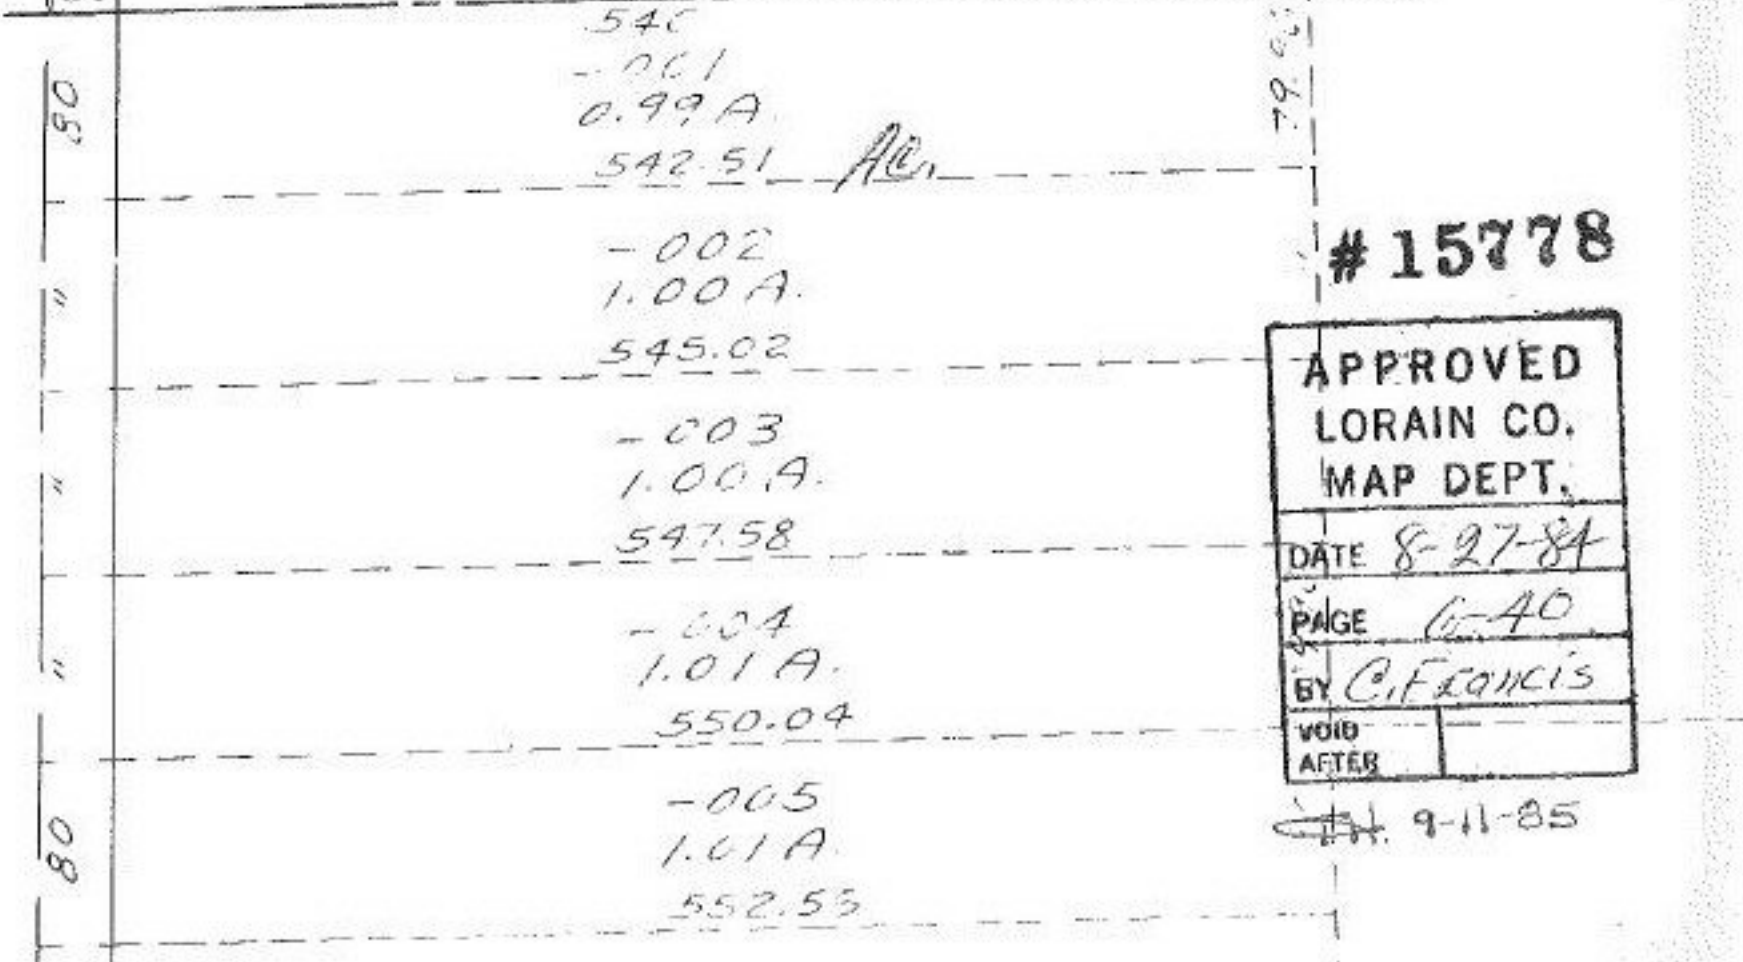 80
-001
0.99 A.
542.51
Ac.
"
-002
1.00 A.
545.02
"
-003
1.00 A.
547.58
"
-004
1.01 A.
550.04
80
-005
1.01 A.
# 15778
APPROVED
LORAIN CO.
MAP DEPT.
DATE 8-27-84
PAGE
BY C. Francis
VOID
AFTER
9-11-85